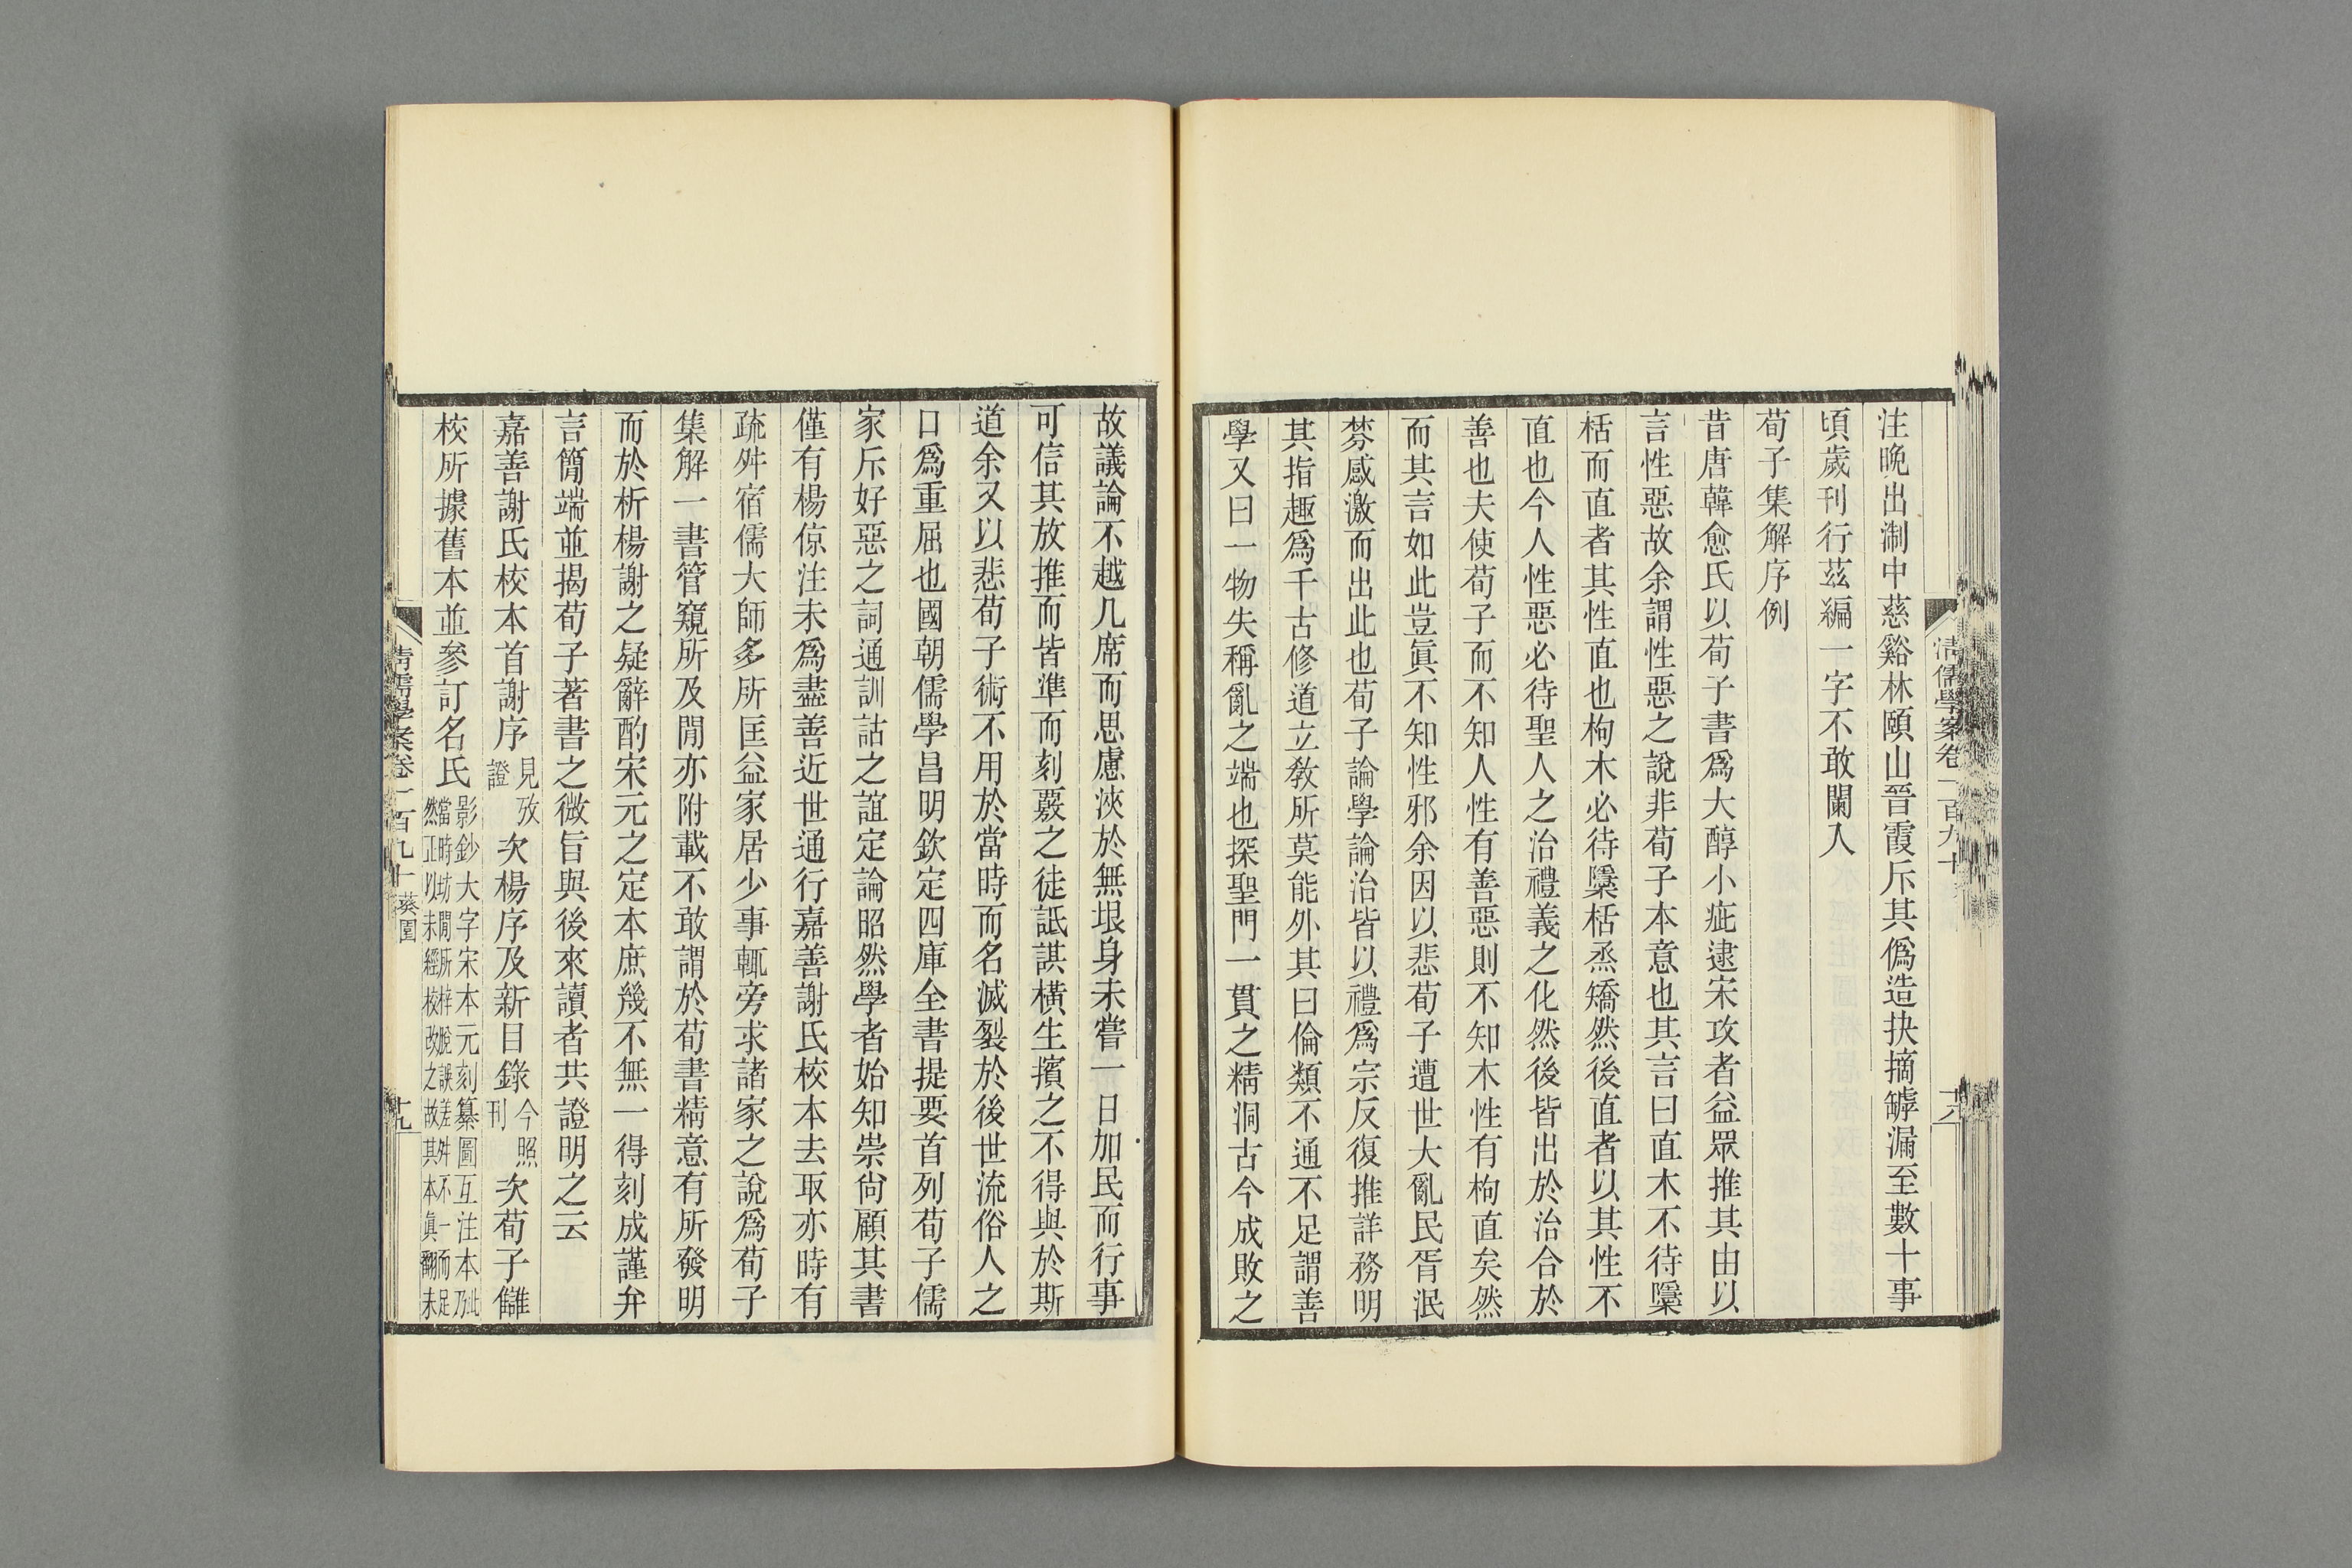 清儒學案卷一百九十
十八
注晚出淛中慈谿林頤山晉霞斥其僞造抉摘罅漏至數十事
頃歲刊行茲編一字不敢闌入
荀子集解序例
昔唐韓愈氏以荀子書爲大醇小疵逮宋攻者益眾推其由以
言性惡故余謂性惡之說非荀子本意也其言曰直木不待檃
栝而直者其性直也枸木必待檃栝烝矯然後直者以其性不
直也今人性惡必待聖人之治禮義之化然後皆出於治合於
善也夫使荀子而不知人性有善惡則不知木性有枸直矣然
而其言如此豈眞不知性邪余因以悲荀子遭世大亂民胥泯
棼感激而出此也荀子論學論治皆以禮爲宗反復推詳務明
其指趣爲千古修道立敎所莫能外其曰倫類不通不足謂善
學又曰一物失稱亂之端也探聖門一貫之精洞古今成敗之
故議論不越几席而思慮浹於無垠身未嘗一日加民而行事
可信其放推而皆準而刻覈之徒詆諆橫生擯之不得與於斯
道余又以悲荀子術不用於當時而名滅裂於後世流俗人之
口爲重屈也國朝儒學昌明欽定四庫全書提要首列荀子儒
家斥好惡之詞通訓詁之誼定論昭然學者始知崇尙顧其書
僅有楊倞注未爲盡善近世通行嘉善謝氏校本去取亦時有
疏舛宿儒大師多所匡益家居少事輒旁求諸家之說爲荀子
集解一書管窺所及閒亦附載不敢謂於荀書精意有所發明
而於析楊謝之疑辭酌宋元之定本庶幾不無一得刻成謹弁
言簡端並揭荀子著書之微旨與後來讀者共證明之云
嘉善謝氏校本首謝序見攷證次楊序及新目錄今照刊次荀子讎
校所據舊本並參訂名氏影鈔大字宋本元刻纂圖互注本此乃當時坊閒所梓脫誤差舛不一而足然正以未經校改之故其本眞翻未
清儒學案卷一百九十 葵園
十九